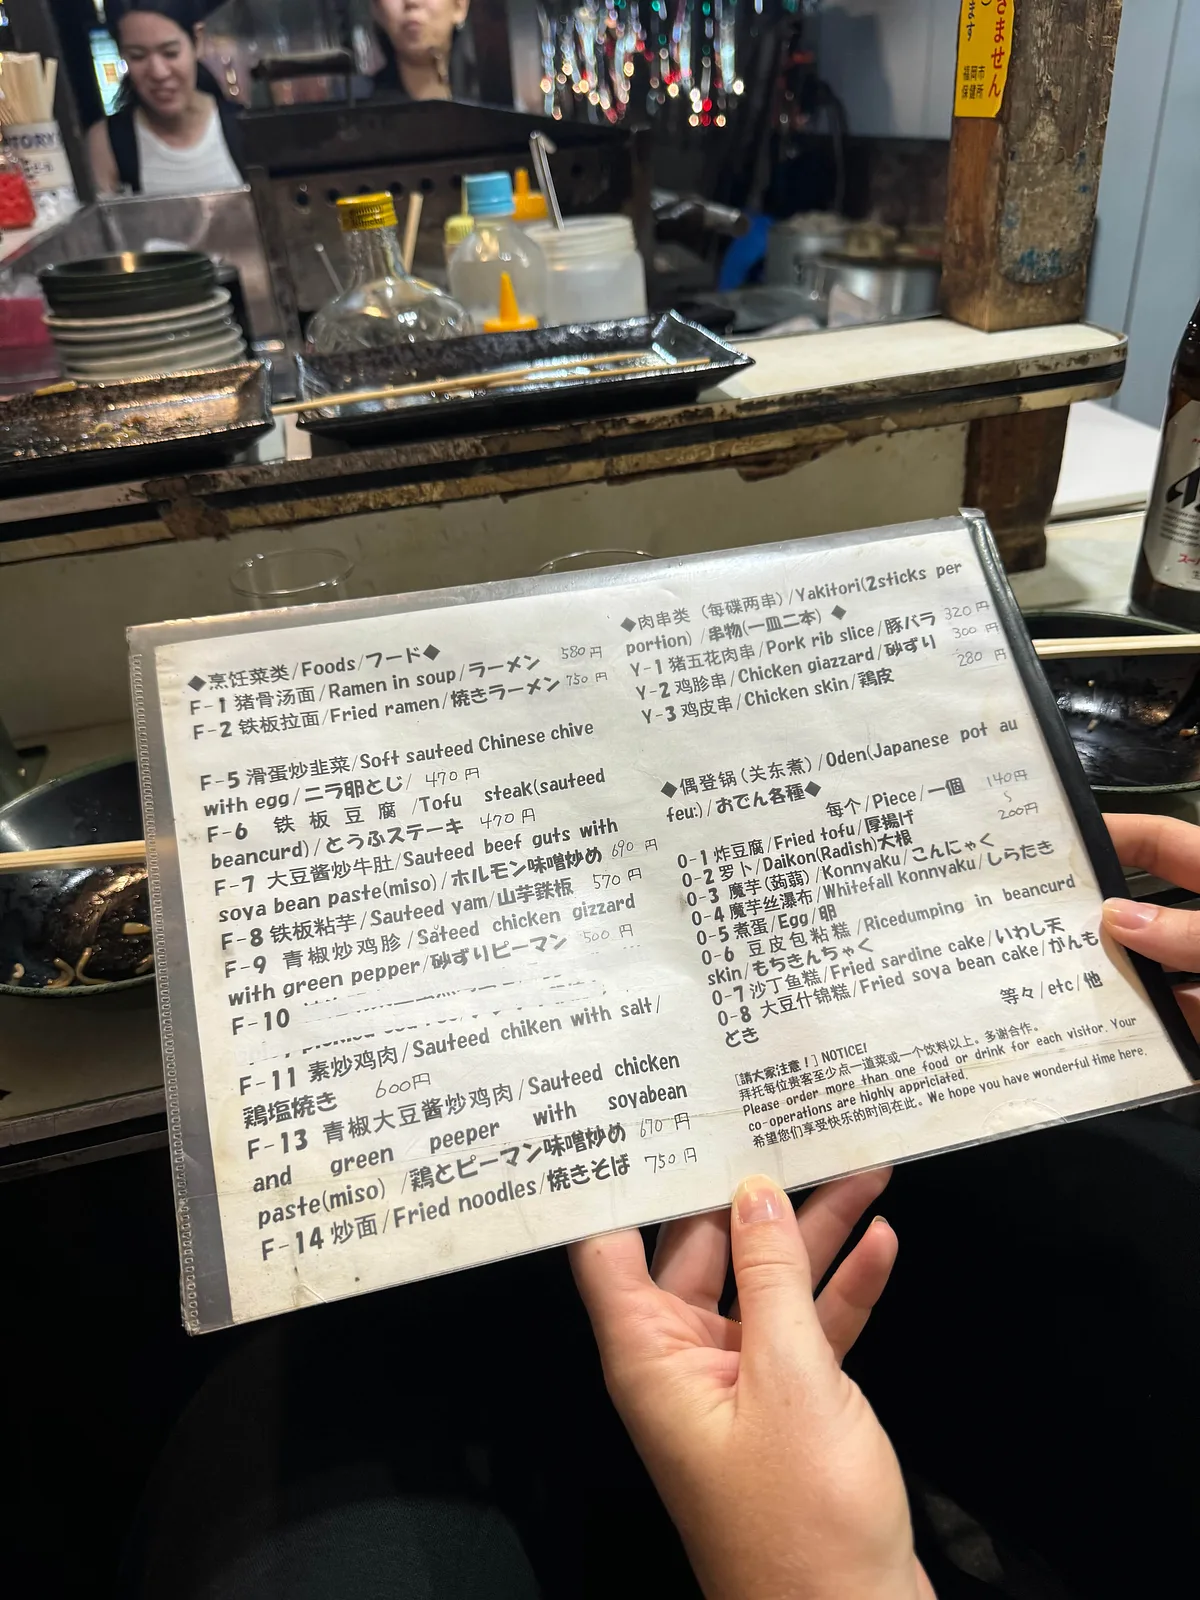 ません
ます
福岡市
保健所
TORY
◆烹饪菜类/Foods/フード◆
F-1 猪骨汤面/Ramen in soup/ラーメン 580円
F-2 铁板拉面/Fried ramen/焼きラーメン 750円
F-5 滑蛋炒韭菜/Soft sauteed Chinese chive
with egg/ニラ卵とじ/ 470円
F-6 铁板豆腐/Tofu steak(sauteed
beancurd)/とうふステーキ 470円
F-7 大豆酱炒牛肚/Sauteed beef guts with
soya bean paste(miso)/ホルモン味噌炒め 690円
F-8 铁板粘芋/Sauteed yam/山芋鉄板 570円
F-9 青椒炒鸡胗/Sateed chicken gizzard
with green pepper/砂ずりピーマン 500円
F-10
F-11 素炒鸡肉/Sauteed chiken with salt/
鶏塩焼き 600円
F-13 青椒大豆酱炒鸡肉/Sauteed chicken
and green peeper with soyabean
paste(miso) /鶏とピーマン味噌炒め 670円
F-14 炒面/Fried noodles/焼きそば 750円
◆肉串类（每碟两串）/Yakitori(2sticks per
portion) /串物(一皿二本) ◆
Y-1 猪五花肉串/Pork rib slice/豚バラ 320円
Y-2 鸡胗串/Chicken giazzard/砂ずり 300円
Y-3 鸡皮串/Chicken skin/鶏皮 280円
◆偶登锅(关东煮)/Oden(Japanese pot au
feu:)/おでん各種◆
每个/Piece/一個 140円
200円
O-1 炸豆腐/Fried tofu/厚揚げ
O-2 罗卜/Daikon(Radish)大根
O-3 魔芋(蒟蒻)/Konnyaku/こんにゃく
O-4 魔芋丝瀑布/Whitefall Konnyaku/しらたき
O-5 煮蛋/Egg/卵
O-6 豆皮包粘糕/Ricedumping in beancurd
skin/もちきんちゃく
O-7 沙丁鱼糕/Fried sardine cake/いわし天
O-8 大豆什锦糕/Fried soya bean cake/がんも
どき
等々/etc/他
[請大家注意！] NOTICE!
拜托每位贵客至少点一道菜或一个饮料以上。多谢合作。
Please order more than one food or drink for each visitor. Your
co-operations are highly appriciated.
希望您们享受快乐的时间在此。We hope you have wonderful time here.